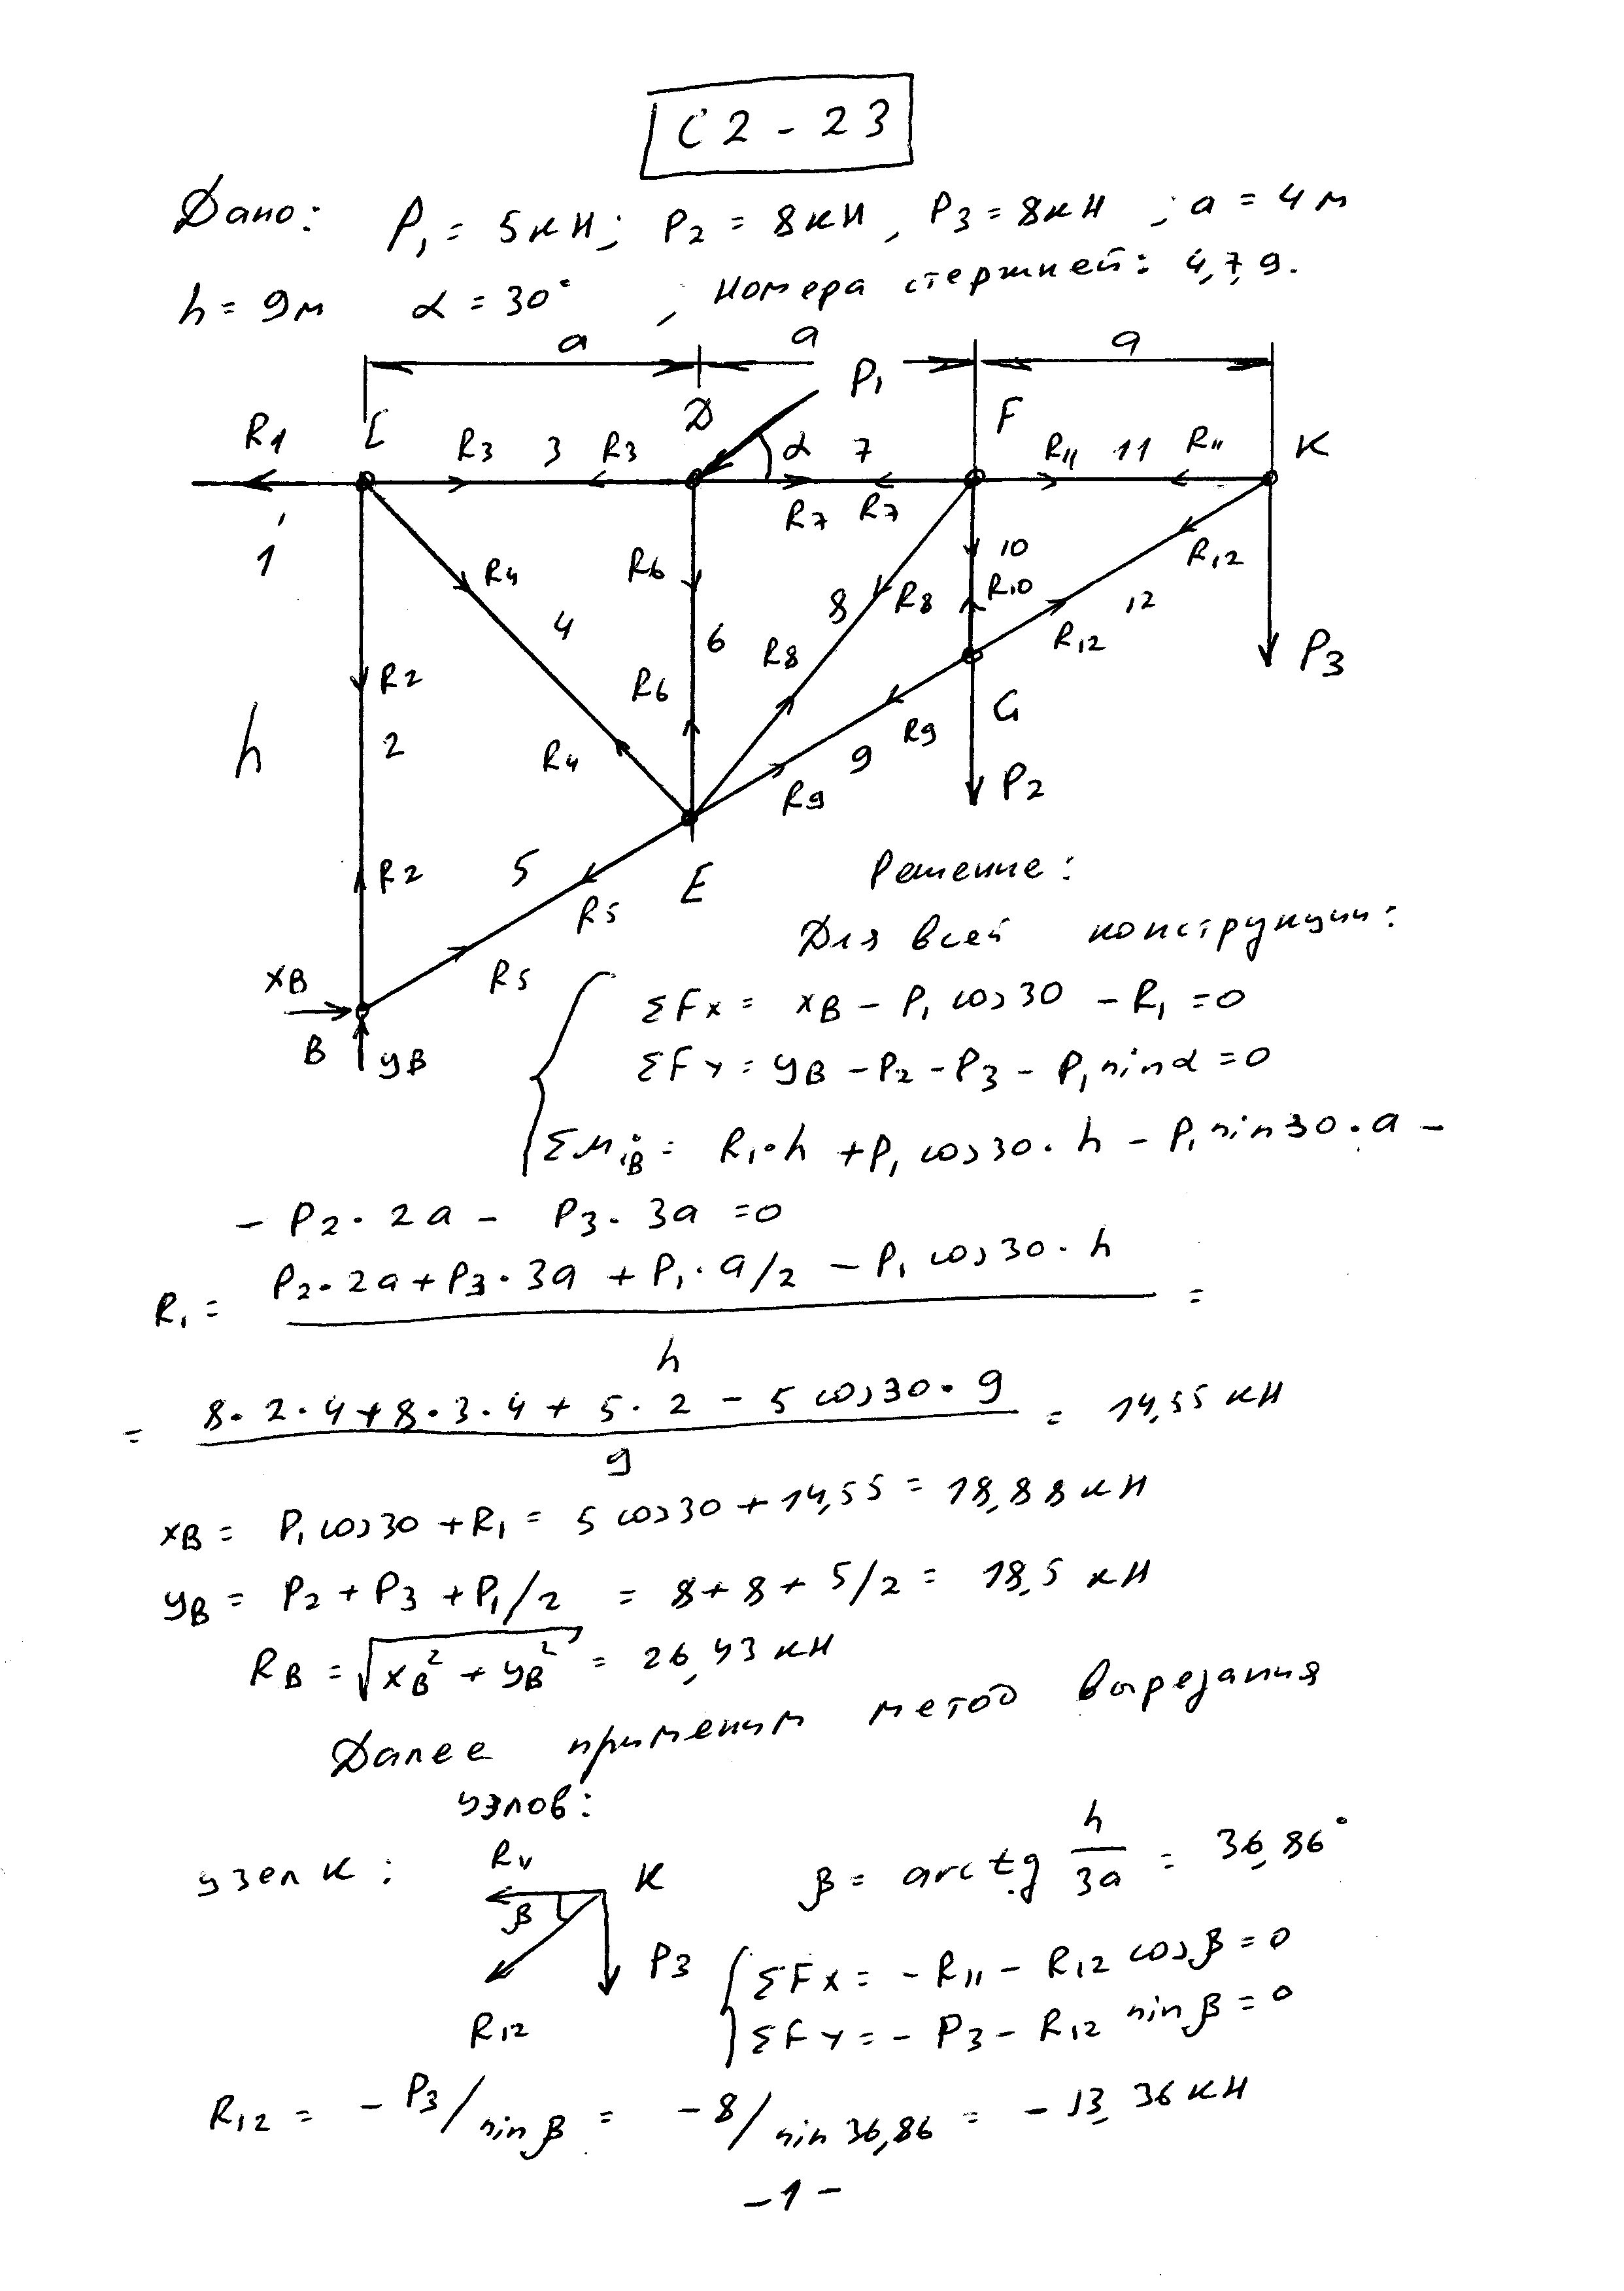 С2-23
Дано: P₁ = 5кН; P₂ = 8кН, P₃ = 8кН ; a = 4м
h = 9м α = 30° , Номера стержней: 4,7,9.
a a a
P₁
R1 C D F K
R3 3 R3 α 7 R11 11 R11
1 R7 R7
R4 R6 10 R12
4 8 R8 R10 12
6 R8 R12 P3
R2 R6 G
h 2 R4 R9
9
R9 P2
R2 5 E Решение:
R5 Для всей конструкции:
XB R5
B YB
ΣFx = xB - P₁ cos30 - R₁ = 0
ΣFy = yB - P₂ - P₃ - P₁ sinα = 0
ΣMiB = R₁·h + P₁ cos30·h - P₁ sin30·a -
- P₂·2a - P₃·3a = 0
R₁ = P₂·2a + P₃·3a + P₁·a/2 - P₁ cos30·h =
h
= 8·2·4+8·3·4+5·2 - 5 cos30·9 = 14,55 кН
9
xB = P₁ cos30 + R₁ = 5 cos30 + 14,55 = 18,88 кН
yB = P₂ + P₃ + P₁/2 = 8+8+5/2 = 18,5 кН
RB = √xB² + yB² = 26,43 кН
Далее применим метод вырезания
узлов:
узел K: Rч K β = arctg h/3a = 36,86°
β
P3 ΣFx = - R11 - R12 cosβ = 0
R12 ΣFy = - P3 - R12 sinβ = 0
R12 = - P3/sinβ = -8/sin36,86 = -13,36 кН
-1-